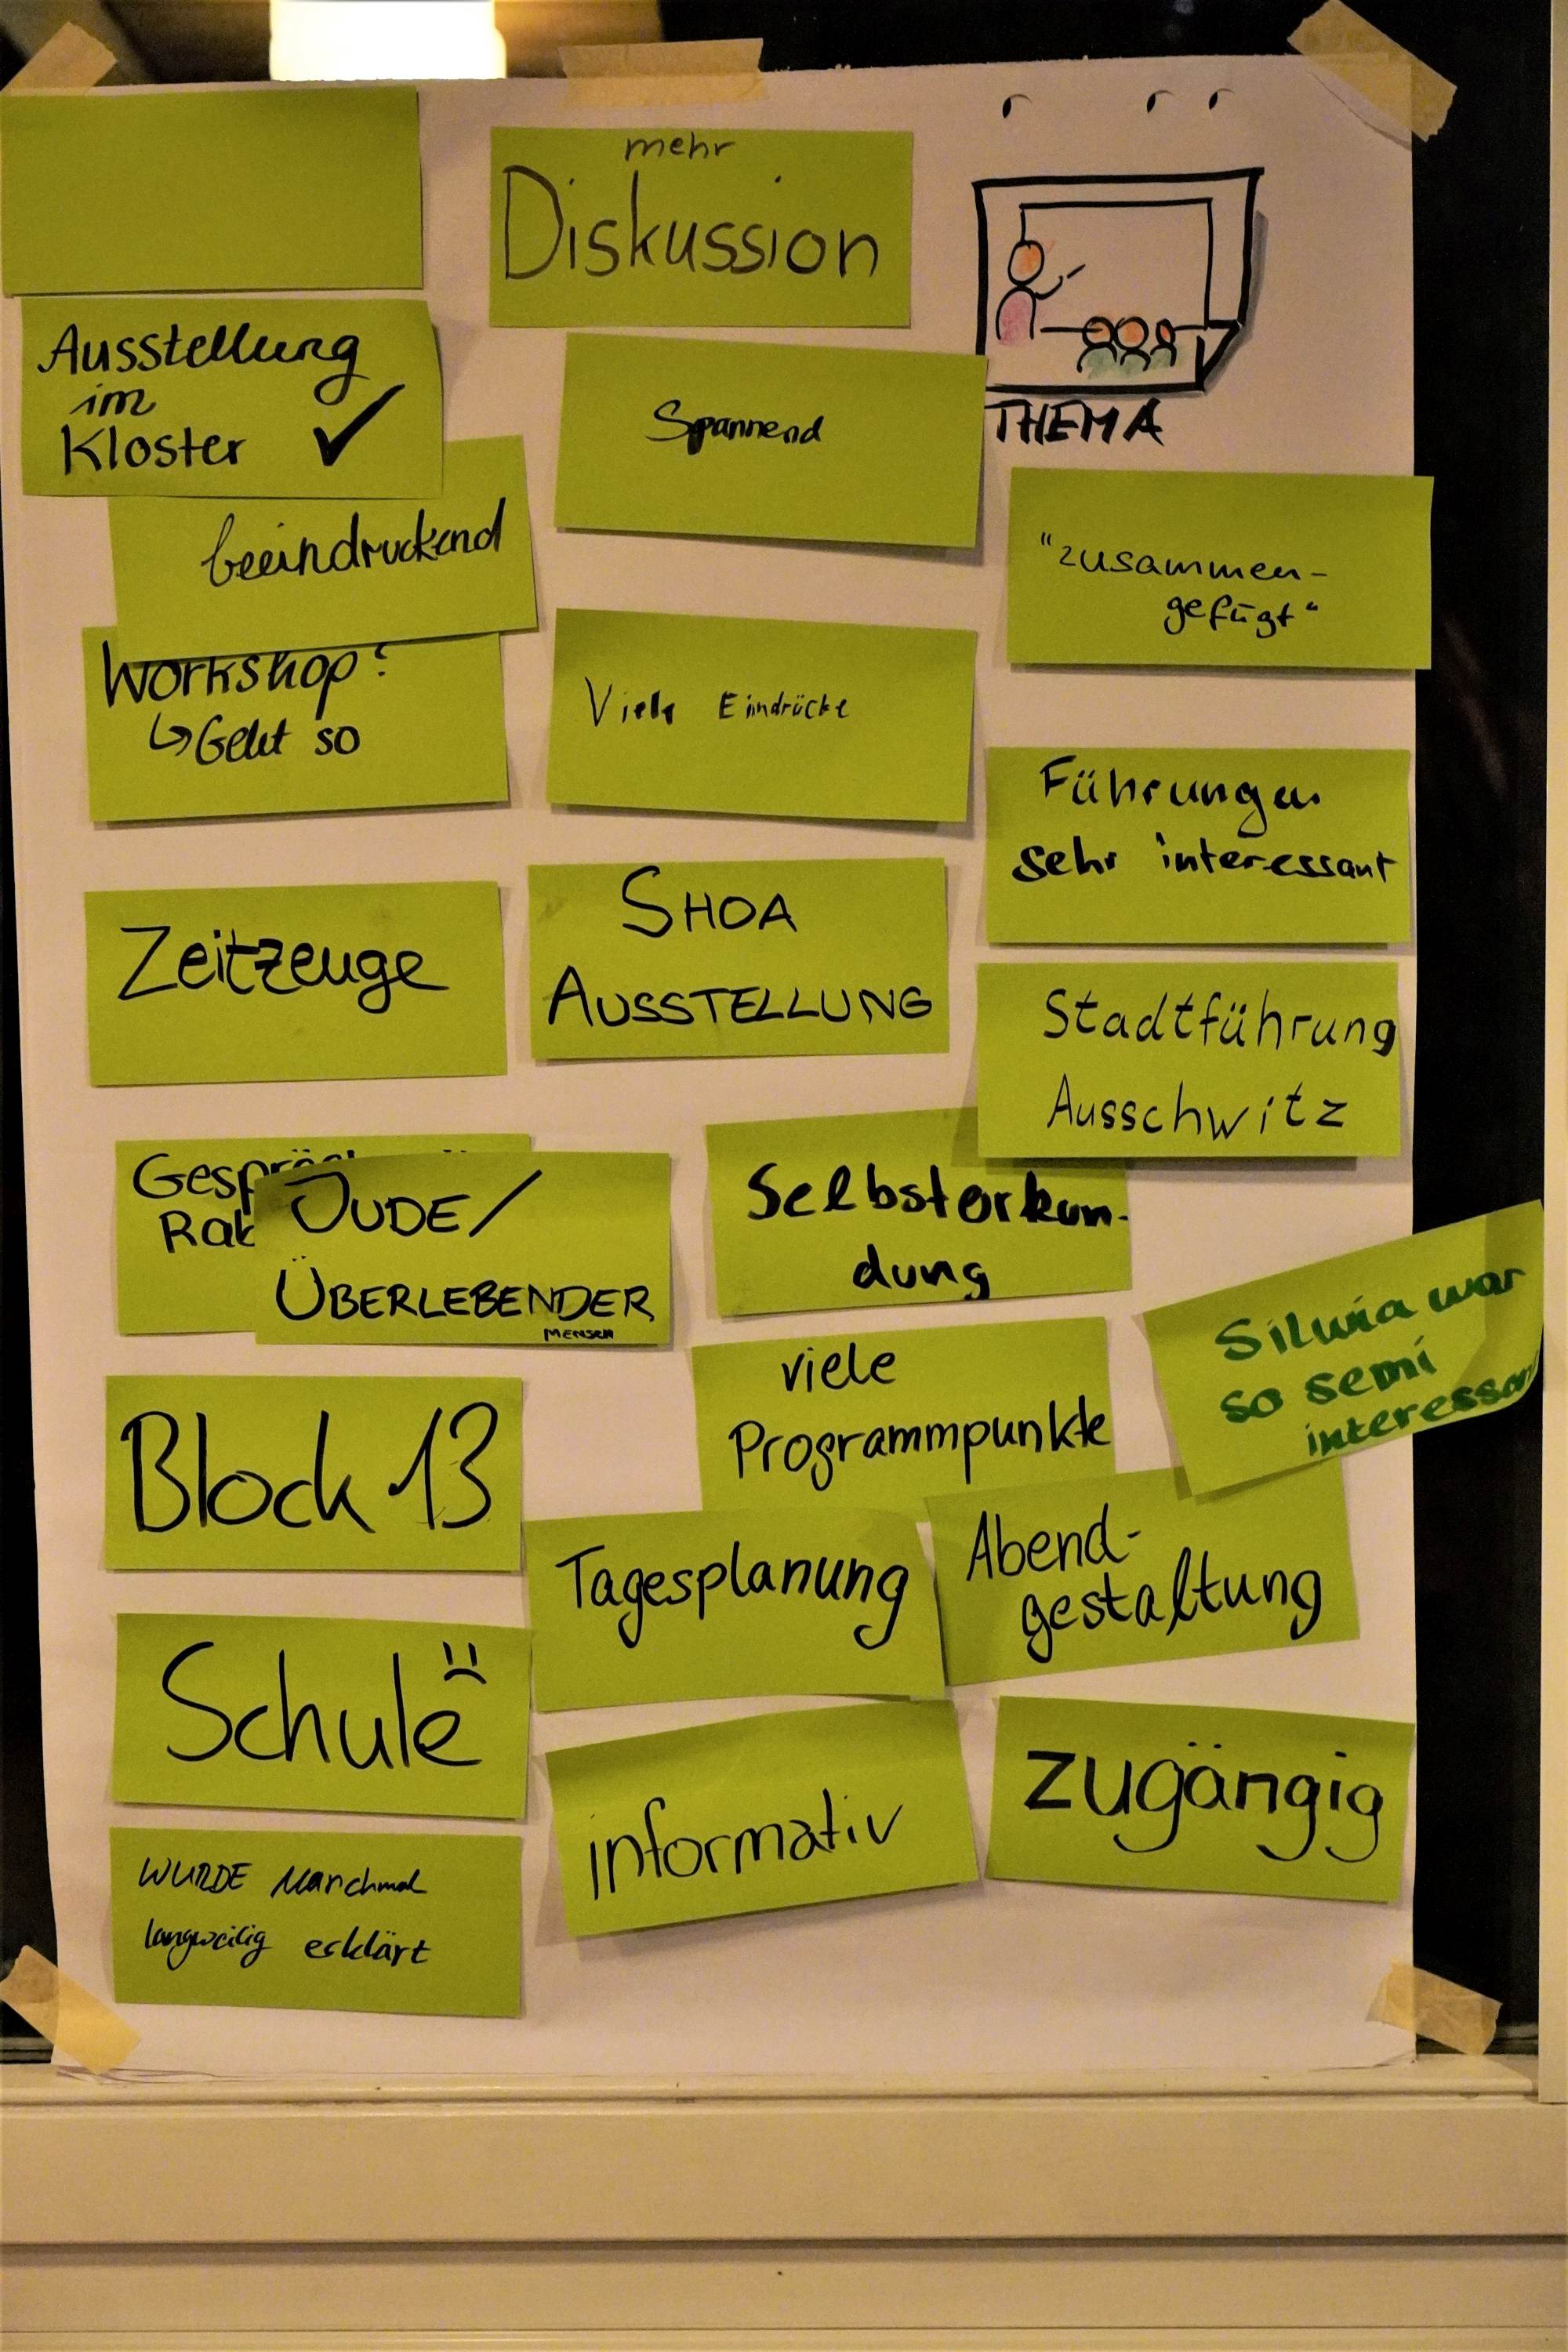 mehr
Diskussion
THEMA
Ausstellung
im
Kloster ✓
Spannend
beeindruckend
"zusammen-
gefügt"
Workshop?
↳ Geht so
Viele Eindrücke
Führungen
sehr interessant
Zeitzeuge
SHOA
AUSSTELLUNG
Stadtführung
Ausschwitz
JUDE/
ÜBERLEBENDER
MENSCH
Selbsterkun-
dung
Silwia war
so semi
viele
Programmpunkte
Block 13
Tagesplanung
Abend-
gestaltung
Schule
informativ
zugängig
WURDE Manchmal
langweilig erklärt